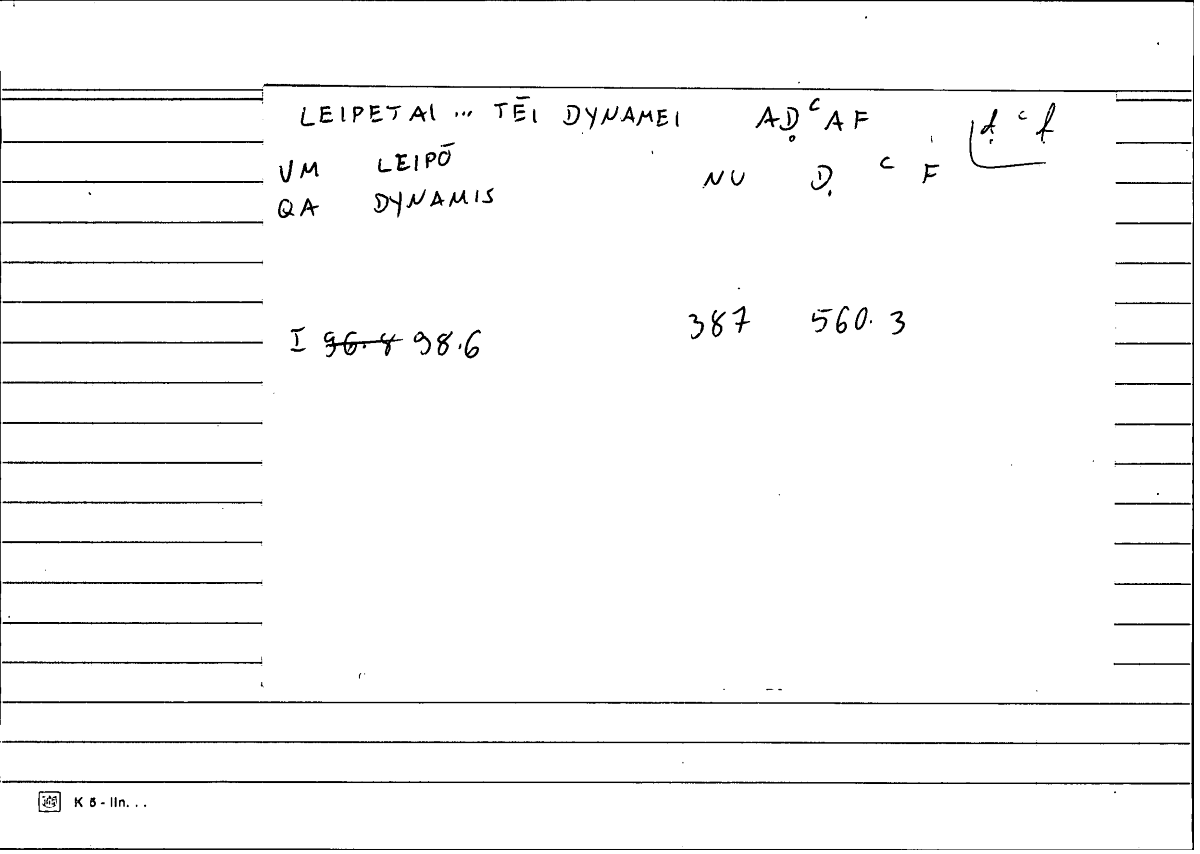 LEIPETAI ... TĒI DYNAMEI AḌᶜAF ḍ ᶜ f
VM LEIPŌ NU Ḍ ᶜ F
QA DYNAMIS
I 96.8 98.6 387 560.3
K 5 - lln. . .